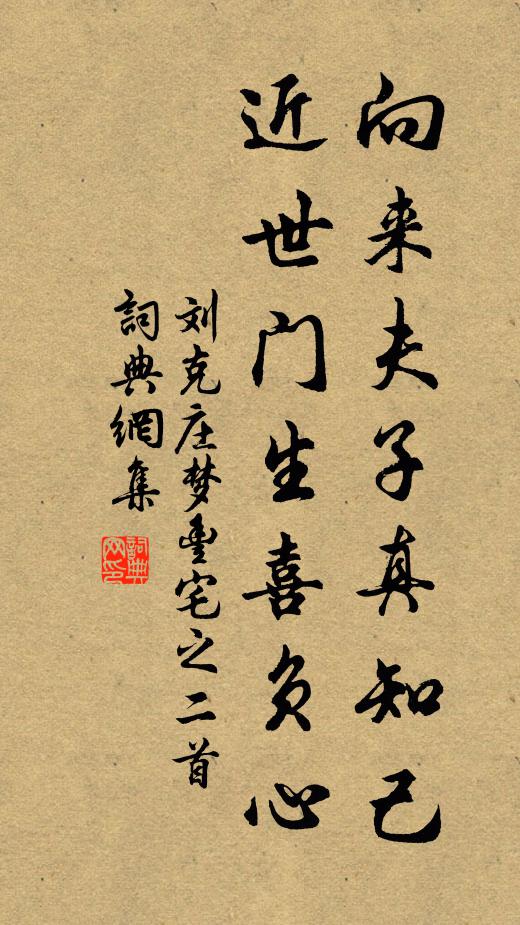 向来夫子真知己
近世门生喜负心
刘克庄梦豊宅之二首
詞典網集
詞典网印